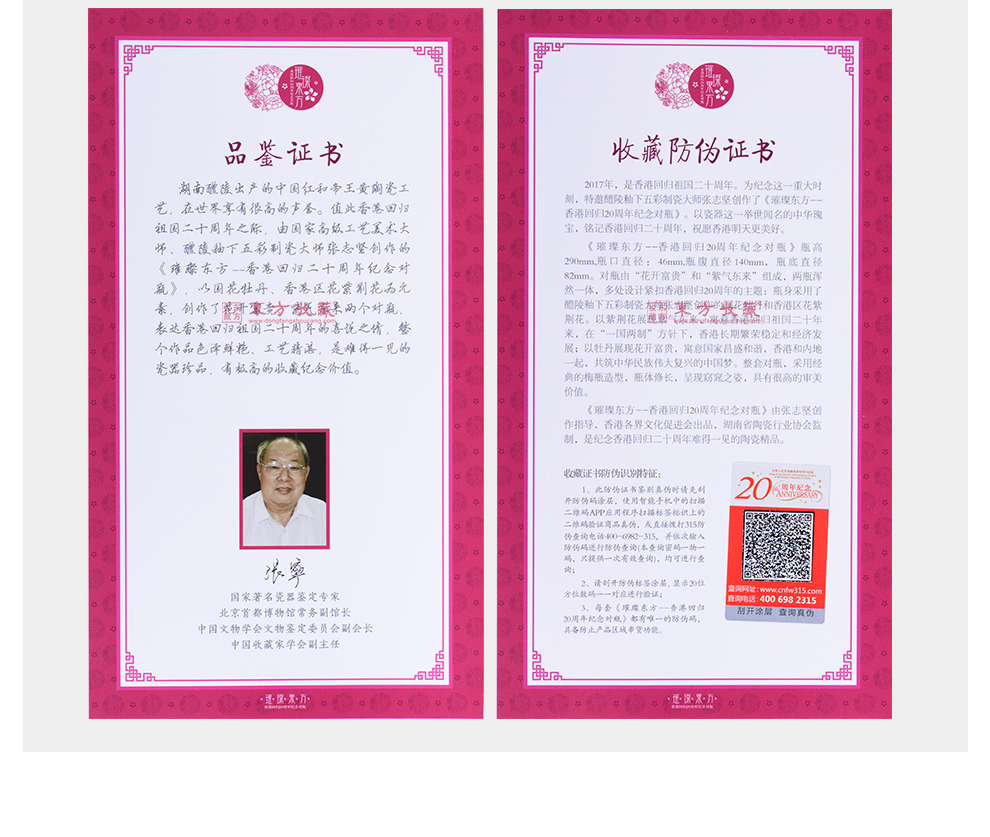 璀璨东方
品鉴证书
湖南醴陵出产的中国红和帝王黄陶瓷工
艺，在世界享有很高的声誉。值此香港回归
祖国二十周年之际，由国家高级工艺美术大
师、醴陵釉下五彩制瓷大师张志坚创作的
《璀璨东方--香港回归二十周年纪念对
瓶》，以国花牡丹、香港区花紫荆花为元
素，创作了花开富贵、紫气东来两个对瓶，
表达香港回归祖国二十周年的喜悦之情，整
个作品色泽鲜艳、工艺精湛，是难得一见的
瓷器珍品，有极高的收藏纪念价值。
東方收藏
www.dongfangshoucang.com
张宁
国家著名瓷器鉴定专家
北京首都博物馆常务副馆长
中国文物学会文物鉴定委员会副会长
中国收藏家学会副主任
·璀·璨·东·方·
香港回归20周年纪念对瓶
璀璨东方
收藏防伪证书
2017年，是香港回归祖国二十周年。为纪念这一重大时
刻，特邀醴陵釉下五彩制瓷大师张志坚创作了《璀璨东方--
香港回归20周年纪念对瓶》。以瓷器这一举世闻名的中华瑰
宝，铭记香港回归二十周年，祝愿香港明天更美好。
《璀璨东方--香港回归20周年纪念对瓶》瓶高
290mm,瓶口直径：46mm,瓶腹直径140mm，瓶底直径
82mm。对瓶由“花开富贵”和“紫气东来”组成，两瓶浑
然一体，多处设计紧扣香港回归20周年的主题；瓶身采用了
醴陵釉下五彩制瓷大师张志坚创作的国花牡丹和香港区花紫
荆花。以紫荆花展现紫气东来，寓意香港回归祖国二十年
来，在“一国两制”方针下，香港长期繁荣稳定和经济发
展；以牡丹展现花开富贵，寓意国家昌盛和谐，香港和内地
一起，共筑中华民族伟大复兴的中国梦。整套对瓶，采用经
典的梅瓶造型，瓶体修长，呈现窈窕之姿，具有很高的审美
价值。
《璀璨东方--香港回归20周年纪念对瓶》由张志坚创
作指导，香港各界文化促进会出品，湖南省陶瓷行业协会监
制，是纪念香港回归二十周年难得一见的陶瓷精品。
東方收藏
收藏证书防伪识别特征：
1、此防伪证书鉴别真伪时请先刮
开防伪码涂层，使用智能手机中的扫描
二维码APP应用程序扫描标签标识上的
二维码验证商品真伪，或直接拨打315防
伪查询电话400-6982-315，并依次输入
防伪码进行防伪查询(本查询密码一物一
码，只提供一次有效查询)，均可进行查
询；
2、请刮开防伪标签涂层，显示20位
方位数码一一对应进行验证；
3、每套《璀璨东方--香港回归
20周年纪念对瓶》都有唯一的防伪码，
具备防止产品区域串货功能。
20th周年纪念
ANNIVERSARY
查询网址:www.cnfw315.com
查询电话:400 698 2315
刮开涂层 查询真伪
·璀·璨·东·方·
香港回归20周年纪念对瓶